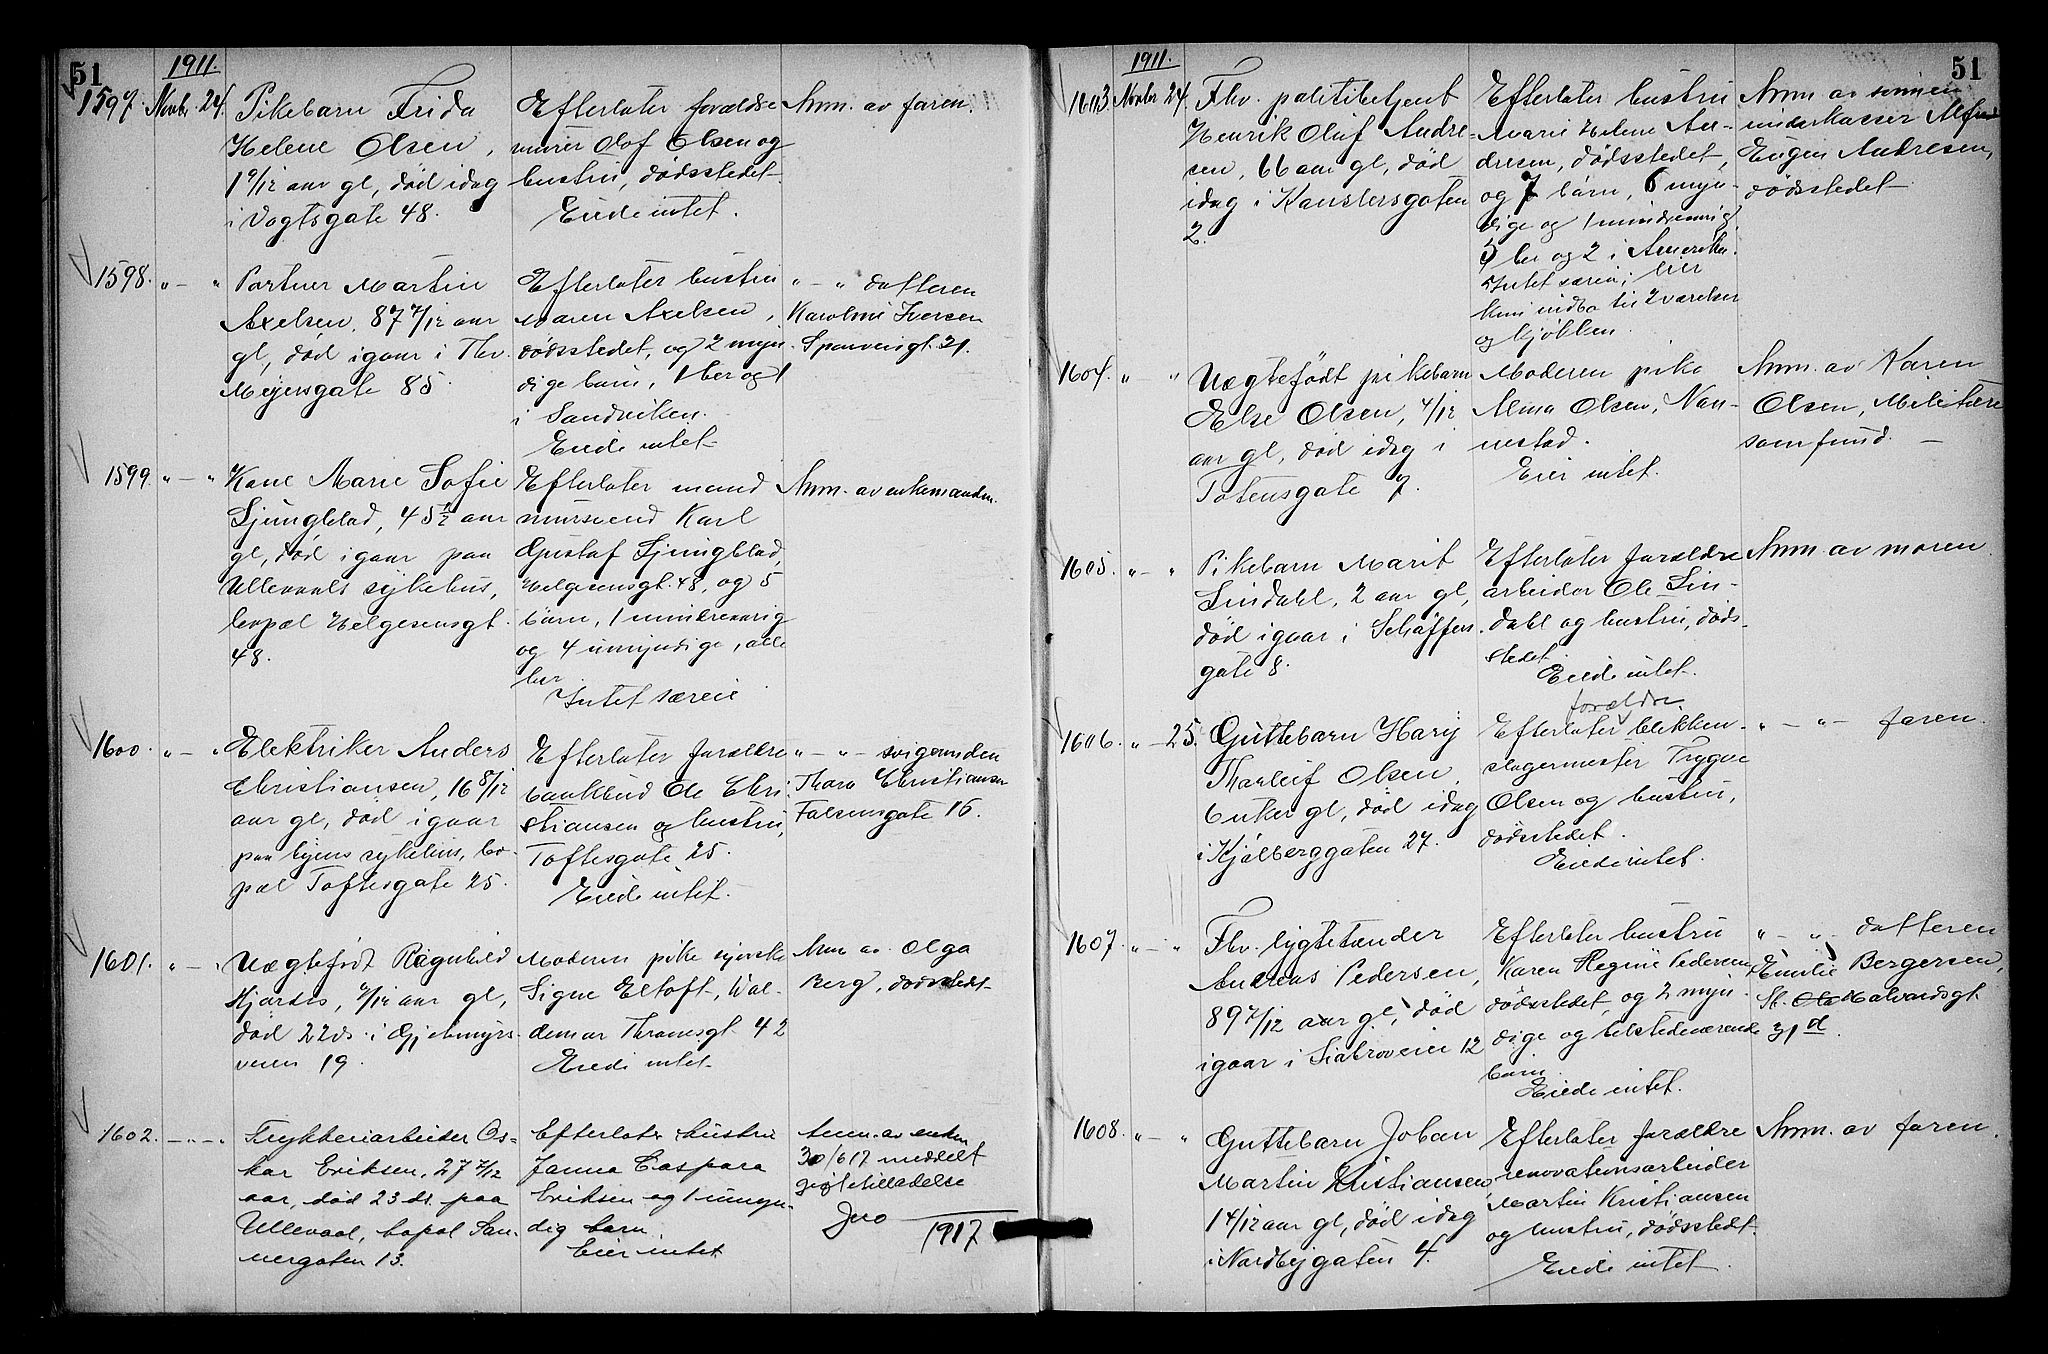 51
1911.
1597. Novbr. 24. Pikebarn Frida
Helene Olsen,
1 9/12 aar gl, död idag
i Vogtsgate 48.
Efterlater forældre
murer Olof Olsen og
hustru, dödsstedet.
Eiede intet.
Anm. av faren.
1598. " — " Portner Martin
Axelsen, 87 7/12 aar
gl, död igaar i Thv.
Meyersgate 85.
Efterlater hustru
Maren Axelsen,
dödsstedet, og 2 myn-
dige barn, 1 her og 1
i Sandviken.
Eiede intet
" — " datteren
Karoline Iversen
Sporveisgt. 21.
1599. " — " Kone Marie Sofie
Ljungblad, 45 1/2 aar
gl, död igaar paa
Ullevaals sykehus,
bopæl Helgesensgt.
48.
Efterlater mand
mursvend Karl
Gustaf Ljungblad,
Helgesensgt. 48, og 5
barn, 1 mindreaarig
og 4 umyndige, alle
her
Intet særeie
Anm. av enkemanden.
1600. " — " Elektriker Anders
Christiansen, 16 8/12
aar gl, död igaar
paa byens sykehus, bo-
pæl Toftesgate 25.
Efterlater forældre
bankbud Ole Chri-
stiansen og hustru,
Toftesgate 25.
Eiede intet.
" — " svigerinden
Thora Christiansen
Falsensgate 16.
1601. " — " Uægtefödt Ragnhild
Hjördis, 7/12 aar gl,
död 22ds. i Gjetemyrs-
veien 19.
Moderen pike syerske
Signe Eltoft, Wal-
demar Thranesgt. 42
Eiede intet
Anm av Olga
Berg, dödsstedet
1602. — " — " Trykkeriarbeider Os-
kar Eriksen, 27 7/12
aar, död 23 ds. paa
Ullevaal, bopæl San-
nergaten 13.
Efterlater hustru
Janna Caspara
Eriksen og 1 umyn-
dig barn.
Eier intet
Anm. av enken
30/6 17 meddelt
giftetilladelse
1917
51
1911.
1603. Novbr 24. Fhv. politibetjent
Henrik Oluf Andre-
sen, 66 aar gl, död
idag i Kanslersgaten
2.
Efterlater hustru
Marie Helene An-
dresen, dödsstedet,
og 7 barn, 6 myn-
dige og 1 mindreaarig,
5 her og 2 i Amerika.
Intet særeie; eier
kun indbo til 2 værelser
og kjökken.
Anm. av sönnen
underkasser Alfred
Eugen Andresen,
dödsstedet
1604. " — " Uægtefödt pikebarn
Else Olsen, 4/12
aar gl, död idag i
Totensgate 7.
Moderen pike
Alma Olsen, Nan-
nestad.
Eier intet.
Anm. av Karen
Olsen, Militære
samfund. —
1605. " — " Pikebarn Marit
Lindahl, 2 aar gl,
död igaar i Scháffers-
gate 8.
Efterlater forældre
arbeider Ole Lin-
dahl og hustru, döds-
stedet
Eiede intet.
Anm. av moren.
1606. " — 25. Guttebarn Hary
Thorleif Olsen,
6 uker gl, död idag
i Kjölberggaten 27.
forældre
Efterlater blikken-
slagermester Trygve
Olsen og hustru,
dödsstedet.
Eiede intet.
" — " — faren.
1607. " — " Fhv. lygtetænder
Andreas Pedersen,
89 7/12 aar gl, död
igaar i Siebroveien 12
Efterlater hustru
Karen Regine Pedersen,
dödsstedet, og 2 myn-
dige og tilstedeværende
barn.
Eiede intet.
" — " — datteren
Emilie Bergersen,
St. Halvardsgt.
31 d.
1608. " — " Guttebarn Johan
Martin Kristiansen,
1 4/12 aar gl, död idag
i Nordbygaten 4.
Efterlater forældre
renovationsarbeider
Martin Kristiansen
og hustru, dödsstedet.
Eiede intet.
Anm. av faren.